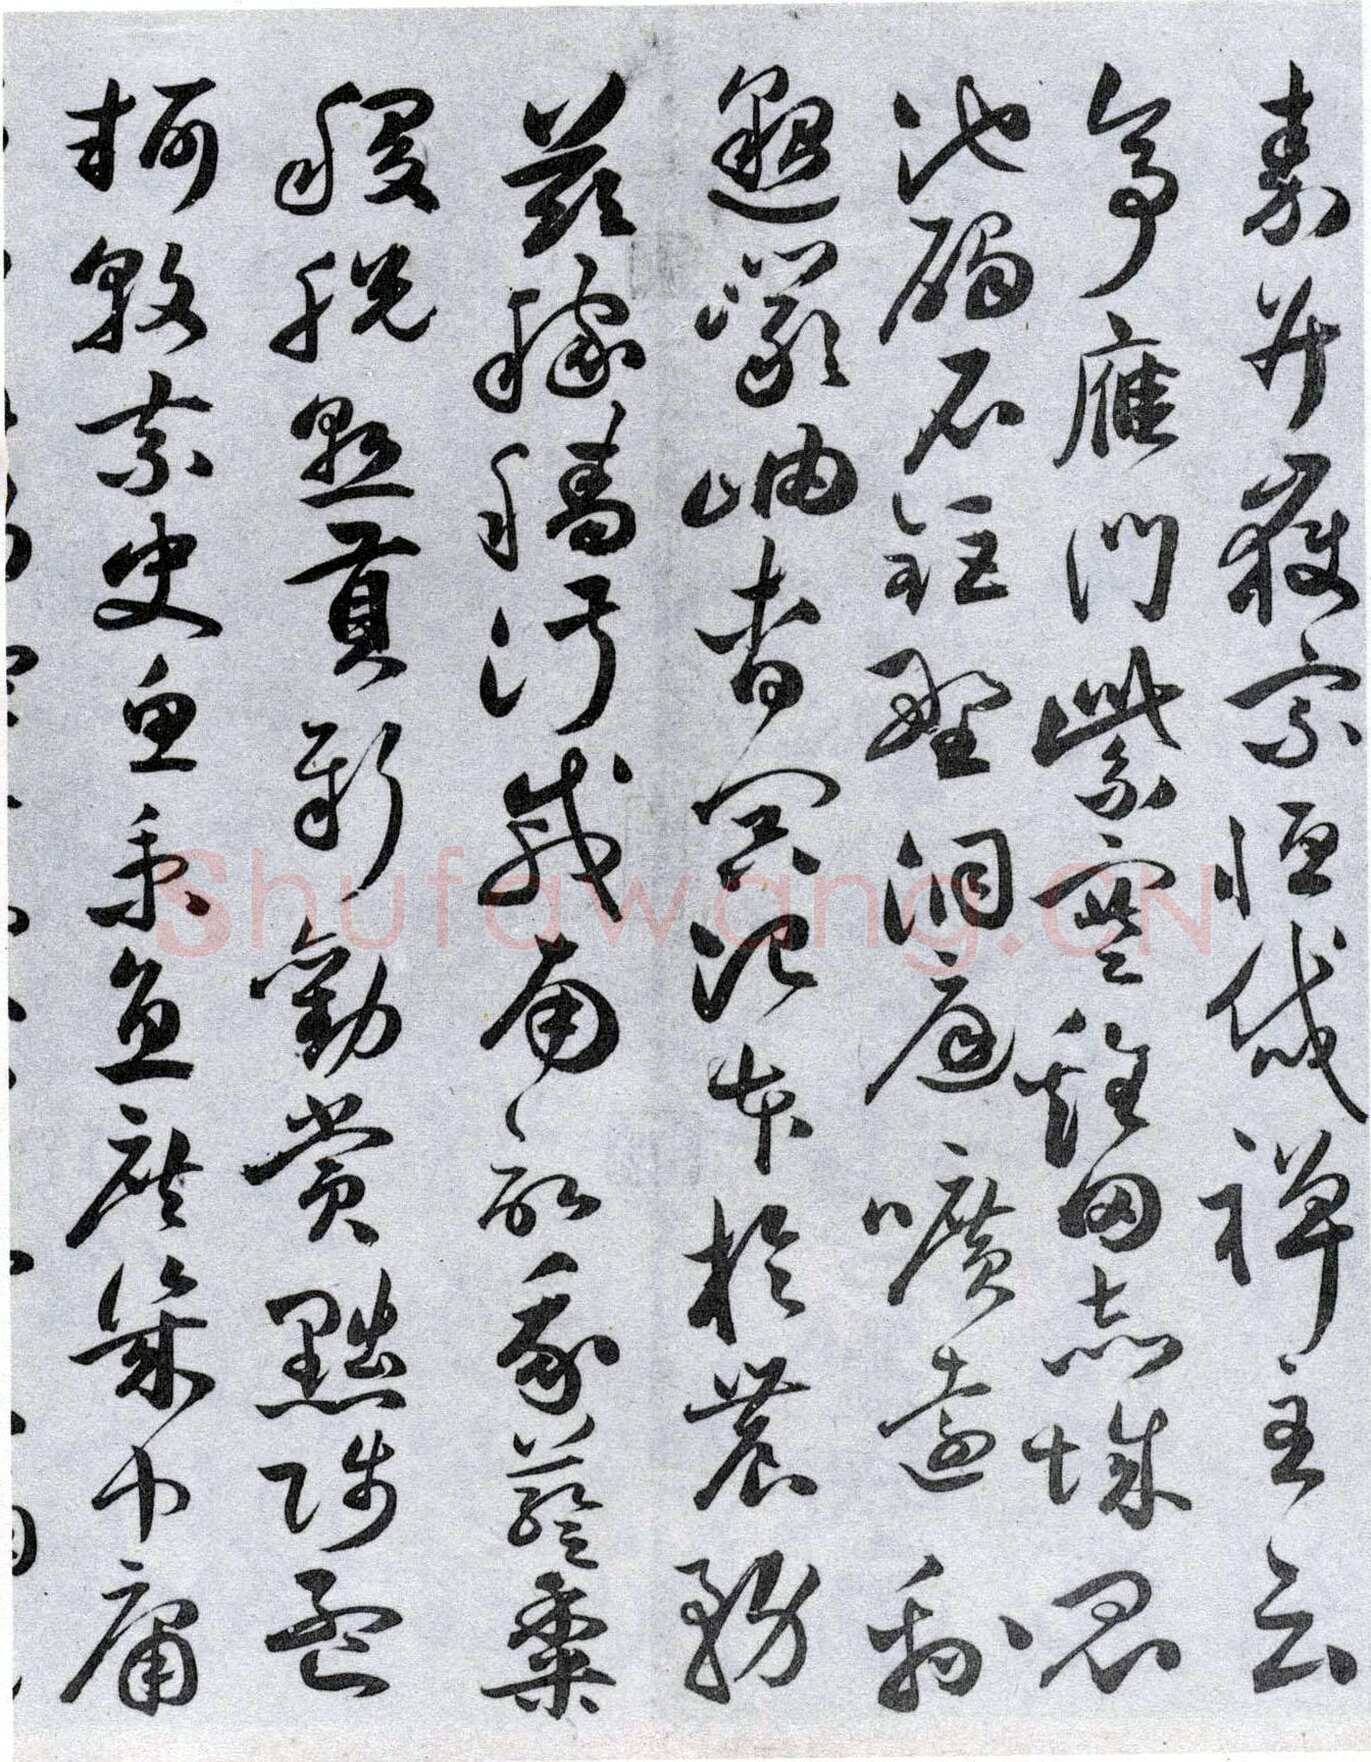 秦并嶽宗恒岱禪主云
亭雁門紫塞雞田赤城昆
池碣石鉅野洞庭曠遠綿
邈巖岫杳冥治本於農務
茲稼穡俶載南畝我藝黍
稷稅熟貢新勸賞黜陟孟
軻敦素史魚秉直庶幾中庸
Shufawang.CN